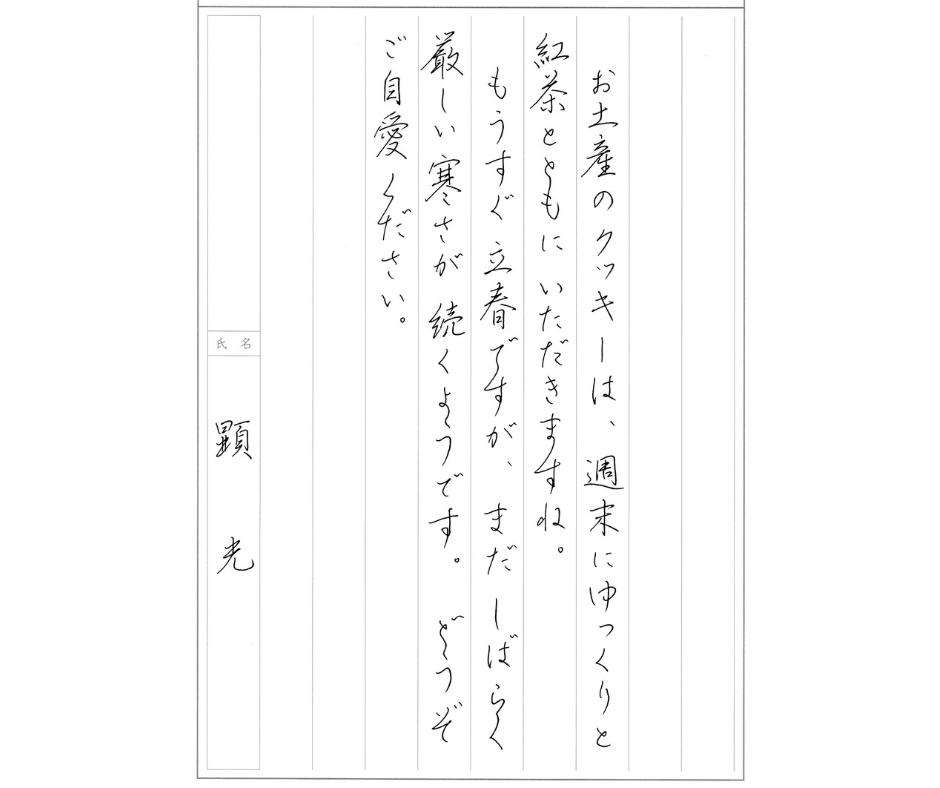 お土産のクッキーは、週末にゆっくりと
紅茶とともにいただきますね。
もうすぐ立春ですが、まだしばらく
厳しい寒さが続くようです。どうぞ
ご自愛ください。
氏名
顕光